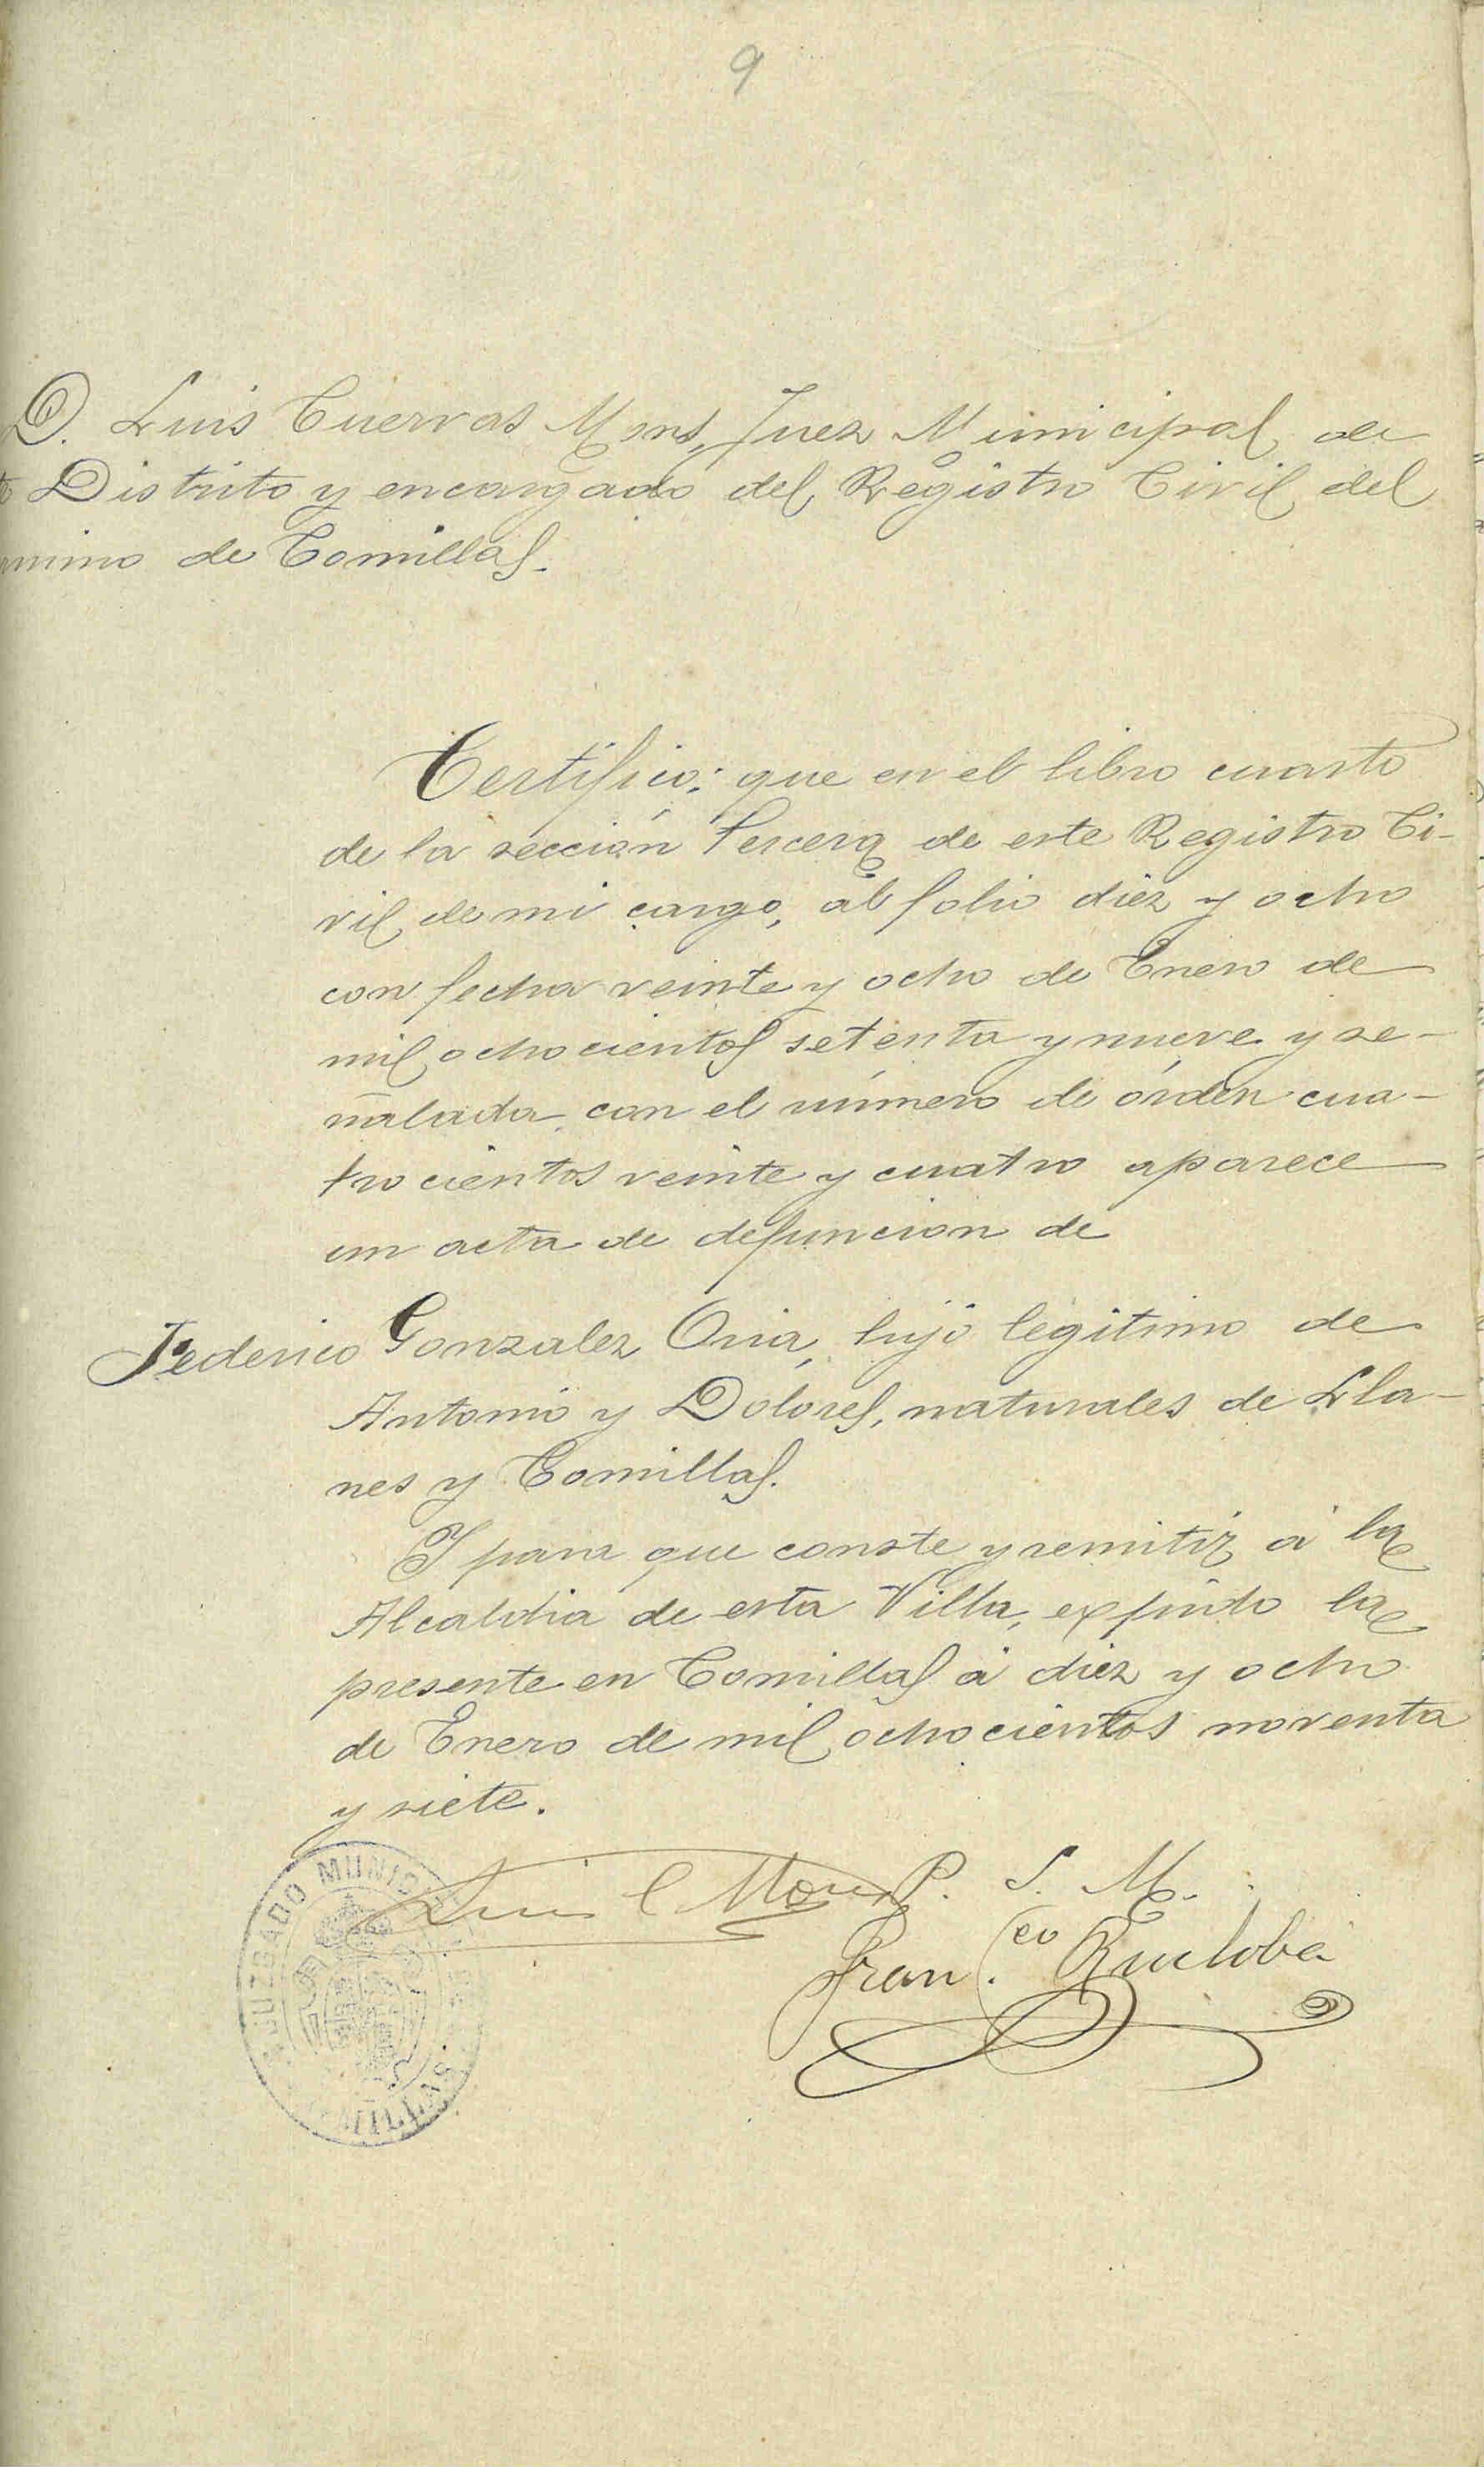 9
D. Luis Cuervas Mons, Juez Municipal de
Distrito y encargado del Registro Civil del
mino de Comillas.
Certifico: que en el libro cuarto
de la sección tercera de este Registro Ci-
vil de mi cargo, al folio diez y ocho
con fecha veinte y ocho de Enero de
mil ochocientos setenta y nueve y se-
ñalada con el número de órden cua-
trocientos veinte y cuatro aparece
un acta de defuncion de
Federico Gonzalez Oria, hijo legitimo de
Antonio y Dolores, naturales de Lla-
nes y Comillas.
Y para que conste y remitir á la
Alcaldia de esta Villa, expido la
presente en Comillas á diez y ocho
de Enero de mil ochocientos noventa
y siete.
Luis C Mons P. S. M.
Fran.co Ruiloba
JUZGADO MUNICI
MILLAS